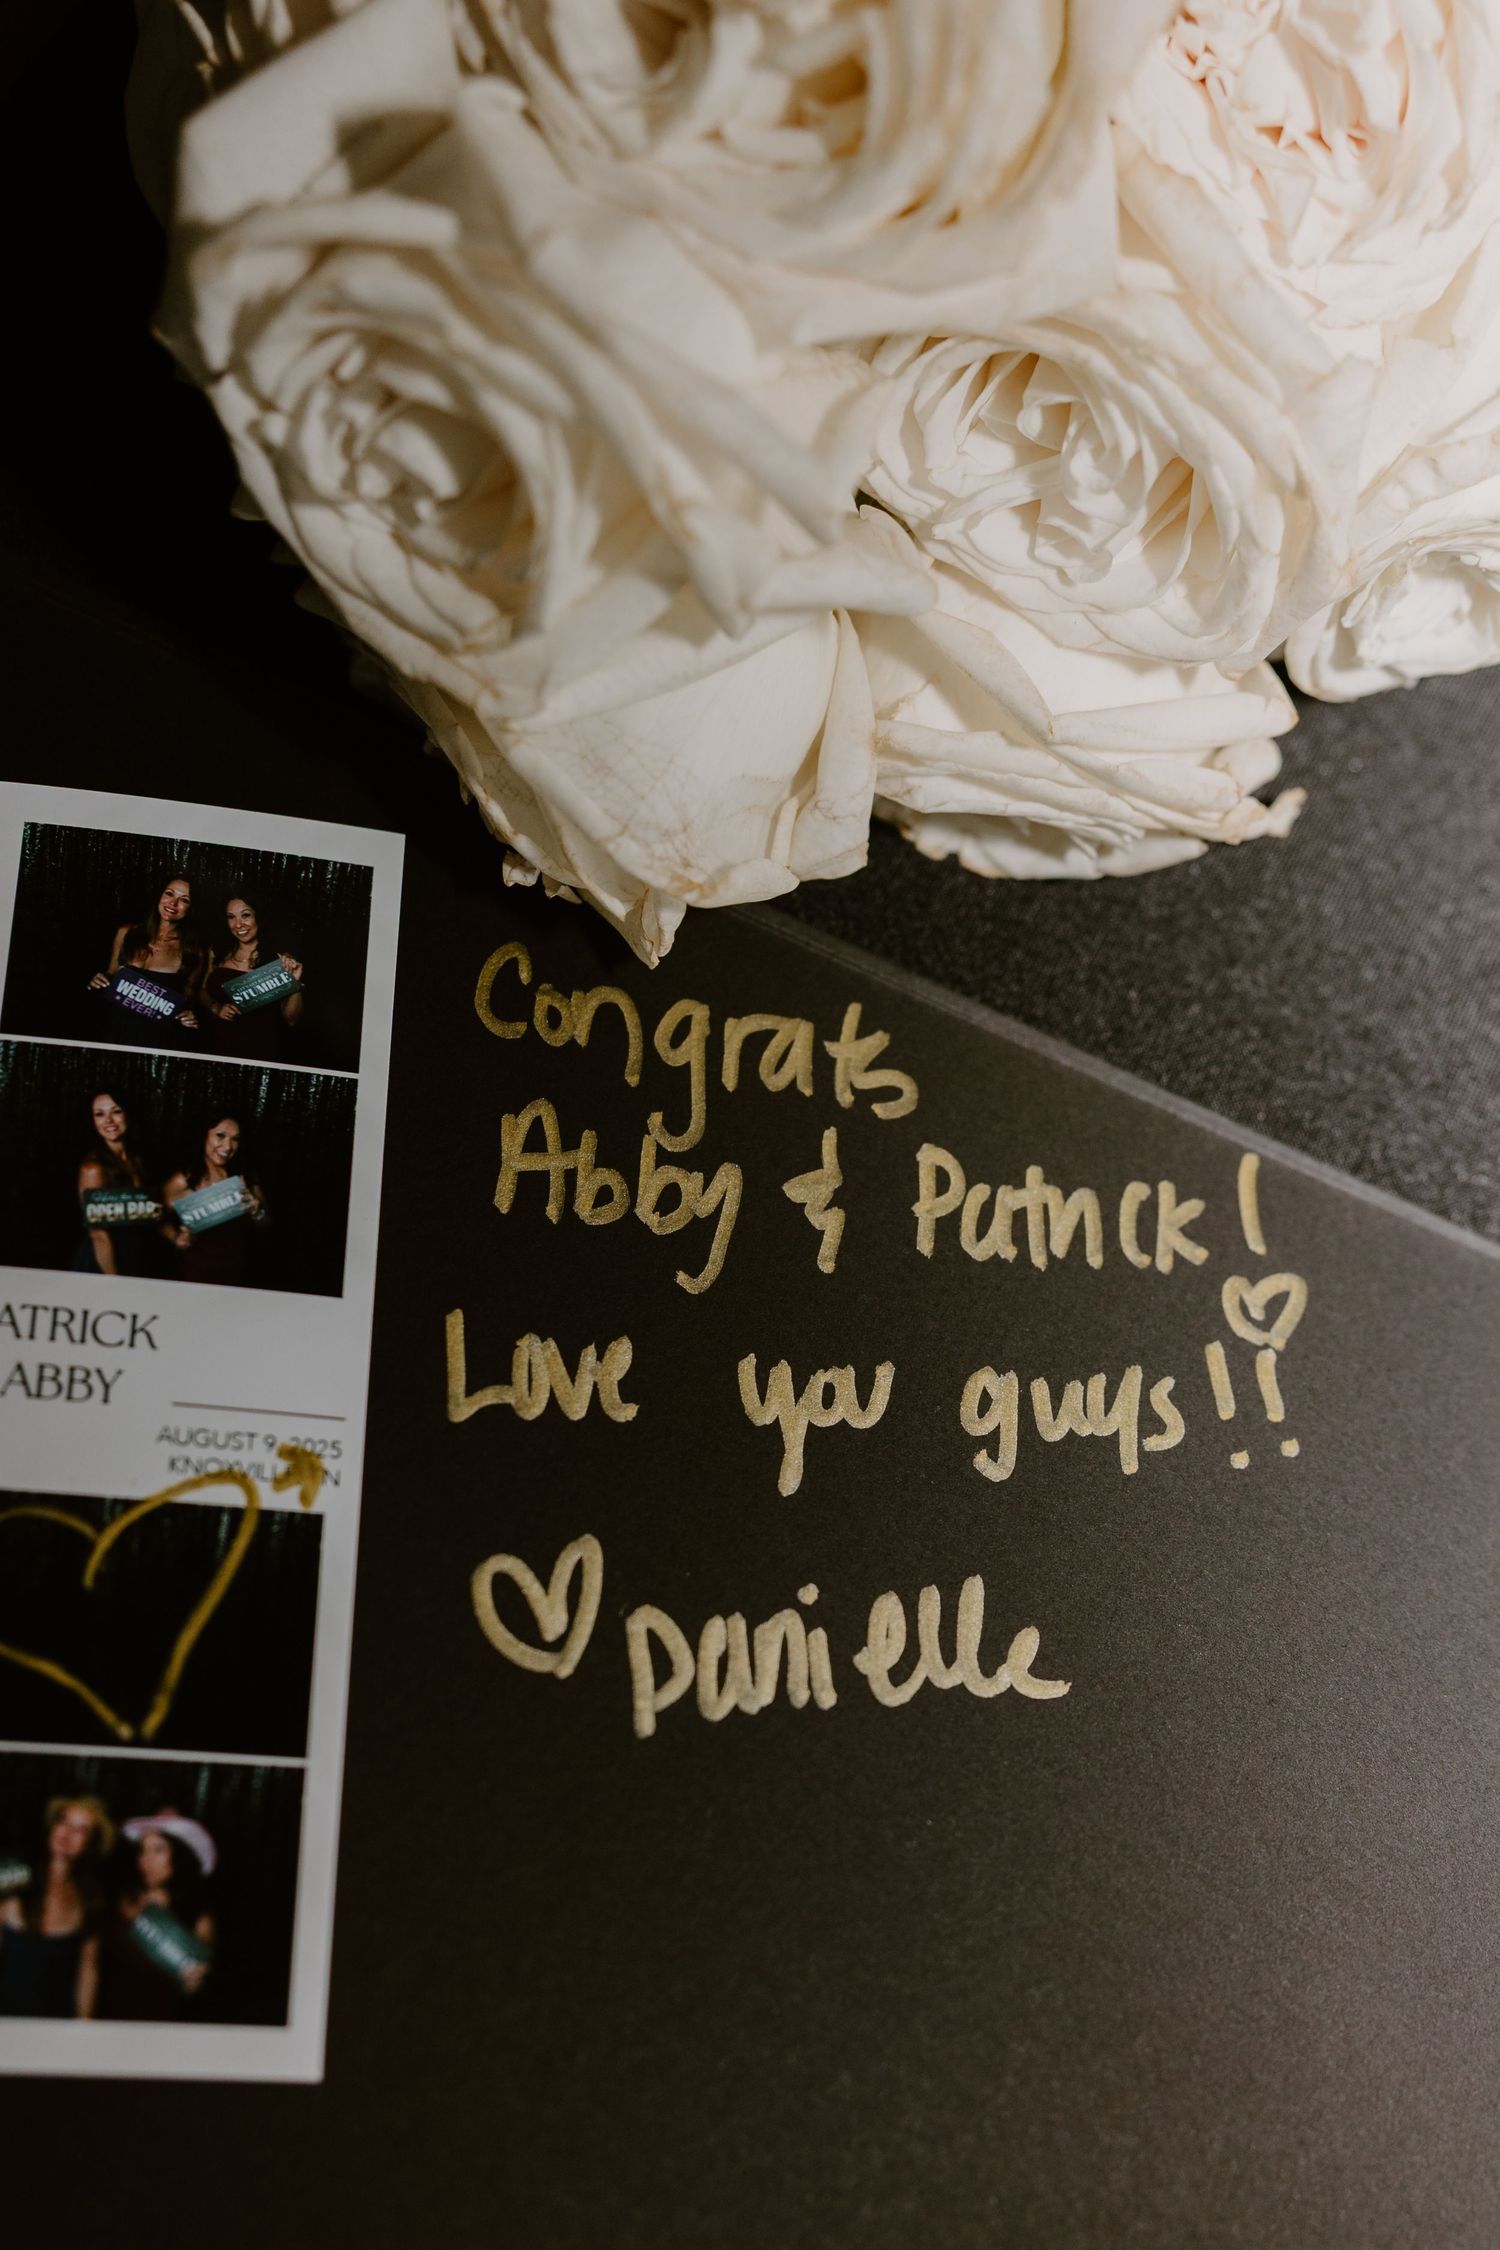 BEST
WEDDING
EVER!
STUMBLE
OPEN BAR
STUMBLE
ATRICK
ABBY
AUGUST 9, 2025
KNOXVILLE, TN
Congrats
Abby & Patrick!
Love you guys!!
Danielle